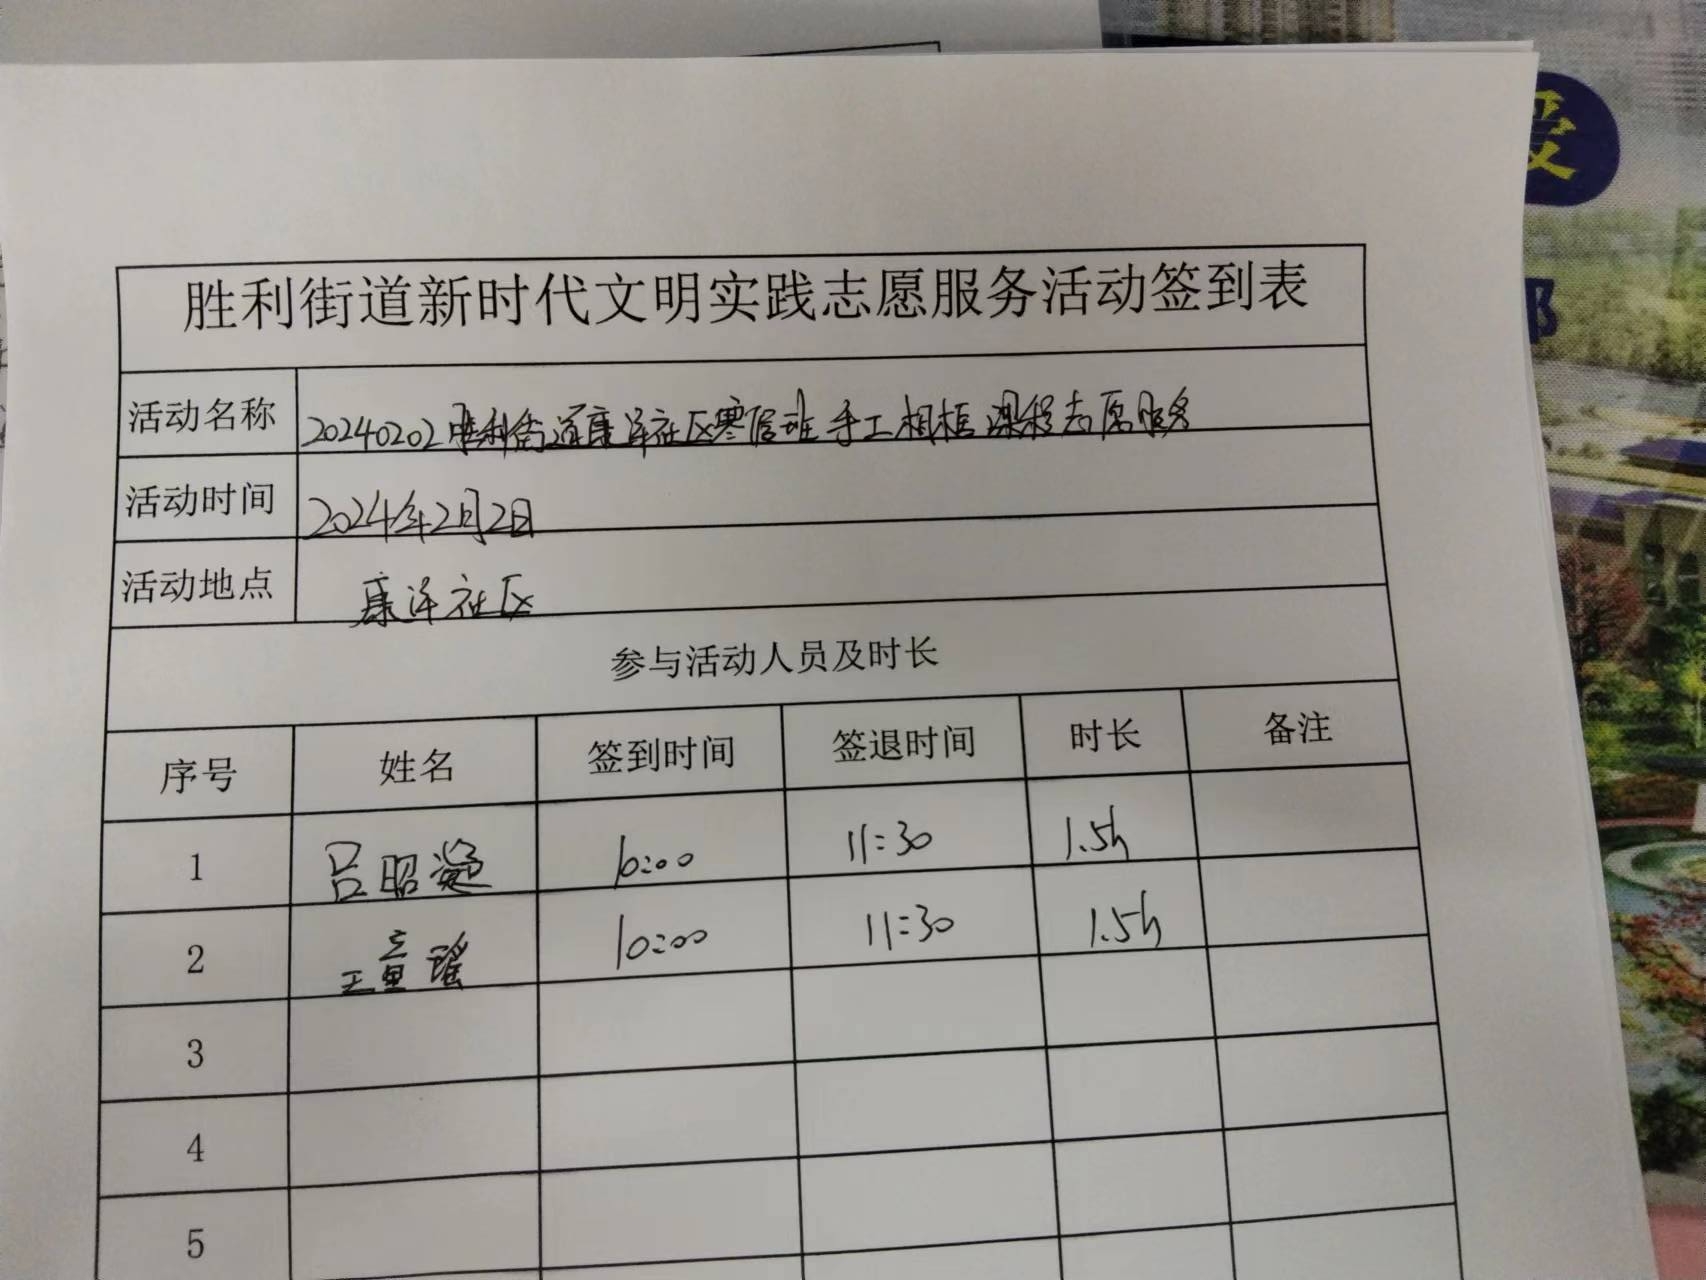 胜利街道新时代文明实践志愿服务活动签到表
活动名称 20240202胜利街道康泽社区寒假班手工相框课程志愿服务
活动时间 2024年2月2日
活动地点 康泽社区
参与活动人员及时长
序号 姓名 签到时间 签退时间 时长 备注
1 吕昭 10:00 11:30 1.5h
2 王童瑶 10:00 11:30 1.5h
3
4
5